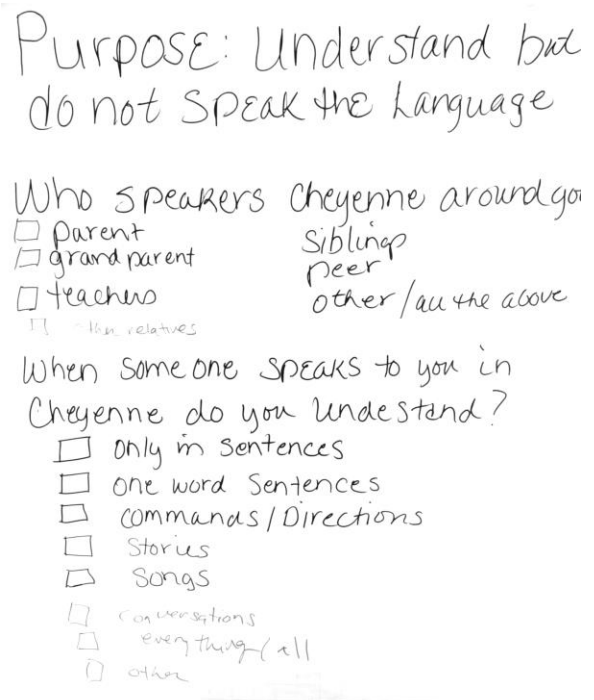 Purpose: Understand but
do not speak the Language
Who speakers Cheyenne around you
parent
grandparent
teachers
other relatives
Siblings
peer
other/all the above
When someone speaks to you in
Cheyenne do you undestand?
only in sentences
one word sentences
commands/Directions
Stories
Songs
conversations
everything/all
other